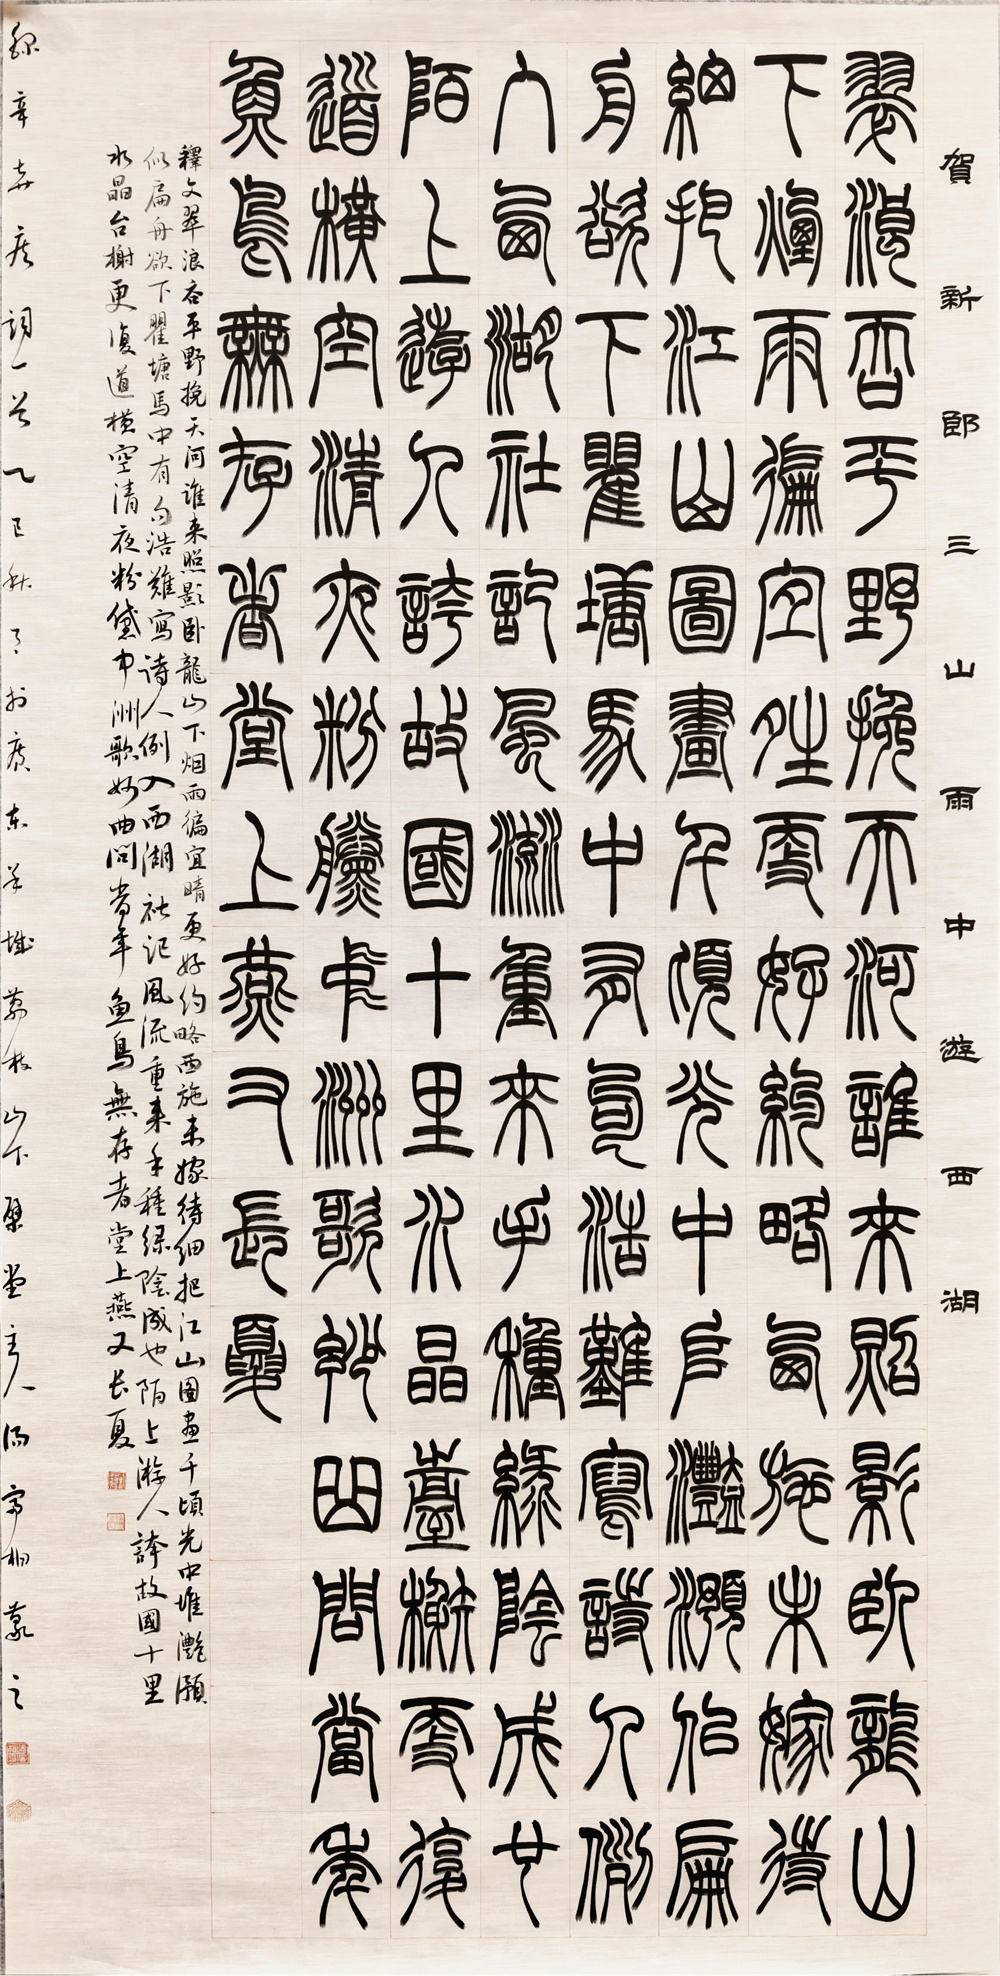 賀新郎三山雨中遊西湖
翠浪吞平野挽天河誰來照影臥龍山
下煙雨偏宜晴更好約略西施未嫁待
細把江山圖畫千頃光中堆灩澦似扁
舟欲下瞿塘馬中有句浩難寫詩人例
入西湖社記風流重來手種綠陰成也
陌上遊人誇故國十里水晶臺榭更復
道橫空清夜粉黛中洲歌妙曲問當年
魚鳥無存者堂上燕又長夏
釋文翠浪吞平野挽天河誰来照影卧龍山下烟雨偏宜晴更好約略西施未嫁待細把江山圖畫千頃光中堆灩澦
似扁舟欲下瞿塘馬中有句浩難寫詩人例入西湖社記風流重来手種綠陰成也陌上游人誇故國十里
水晶台榭更復道橫空清夜粉黛中洲歌妙曲問當年魚鳥無存者堂上燕又长夏
錄辛弃疾詞一首乙巳秋月於廣東羊城荔枝山下堂主人馮桐篆之